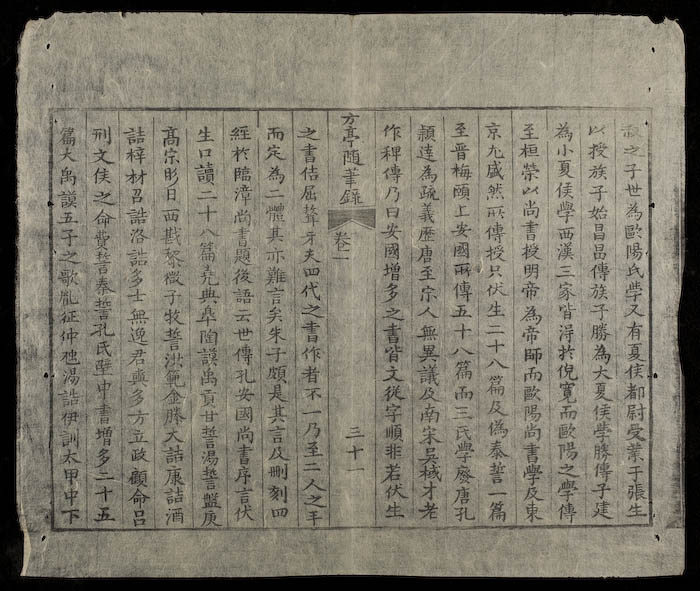 之子世為歐陽氏學又有夏侯都尉受業于張生
以授族子始昌昌傳族子勝為大夏侯學勝傳子建
為小夏侯學西漢三家皆淂於倪寬而歐陽之學傳
至桓榮以尚書授明帝為帝師而歐陽尚書學及東
京尤盛然所傳授只伏生二十八篇及偽泰誓一篇
至晋梅頤上安國所傳五十八篇而三氏學廢唐孔
穎達為疏義歷唐至宗人無異議及南宋吴棫才老
作稗傳乃曰安國增多之書皆文從字順非若伏生
方亭隨筆錄 卷一 三十一
之書佶屈聱牙夫四代之書作者不一乃至二人之手
而定為二體其亦難言矣朱子頗是其言及刪刻四
經於臨漳尚書題後語云世傳孔安國尚書序言伏
生口讀二十八篇尭典臯陶謨禹貢甘誓湯誓盤庚
高宗肜日西戡黎微子牧誓洪範金縢大誥康誥酒
誥梓材召誥洛誥多士無逸君奭多方立政顧命吕
刑文侯之命費誓泰誓孔氏壁中書增多二十五
篇大禹謨五子之歌胤征仲虺湯誥伊訓太甲中下